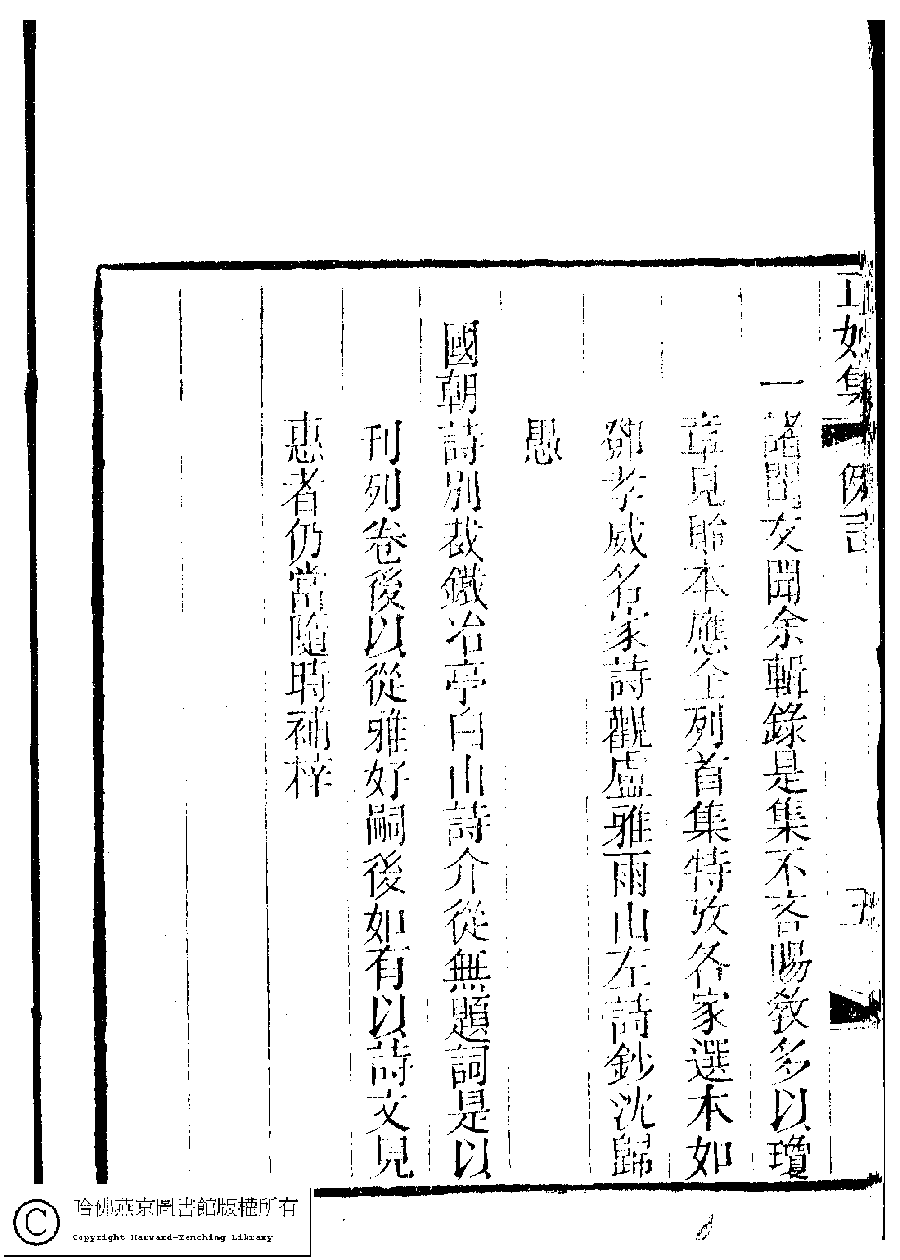 正始集 例言 五
一諸閨友聞余輯錄是集不吝賜教多以瓊
章見貽本應全列首集特攷各家選本如
鄧孝威名家詩觀盧雅雨山左詩鈔沈歸
愚
國朝詩別裁鐵冶亭白山詩介從無題詞是以
刊列卷後以從雅好嗣後如有以詩文見
惠者仍當隨時補梓
哈佛燕京圖書館版權所有
Copyright Harvard-Yenching Library